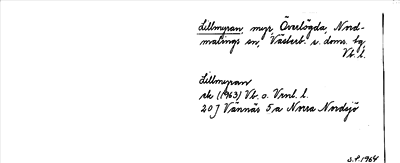 Lillmyran, myr, Överlögda, Nord-
malings sn, Västerb. s. doms. tg,
Vb. l.
Lillmyran
ek (1963) Vb. o. Vrml. l.
20 J Vännäs 5 a Norra Nordsjö
S.P. 1964